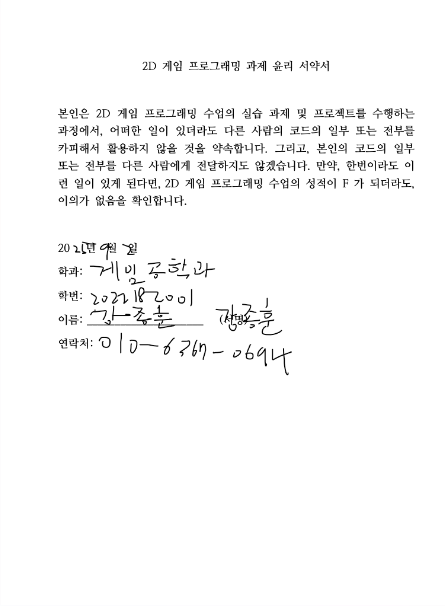 2D 게임 프로그래밍 과제 윤리 서약서
본인은 2D 게임 프로그래밍 수업의 실습 과제 및 프로젝트를 수행하는
과정에서, 어떠한 일이 있더라도 다른 사람의 코드의 일부 또는 전부를
카피해서 활용하지 않을 것을 약속합니다. 그리고, 본인의 코드의 일부
또는 전부를 다른 사람에게 전달하지도 않겠습니다. 만약, 한번이라도 이
런 일이 있게 된다면, 2D 게임 프로그래밍 수업의 성적이 F 가 되더라도,
이의가 없음을 확인합니다.
20 년 9월 일
학과: 게임공학과
학번: 2022182001
이름: 강종훈 (서명) 강종훈
연락처: 010-6367-0694